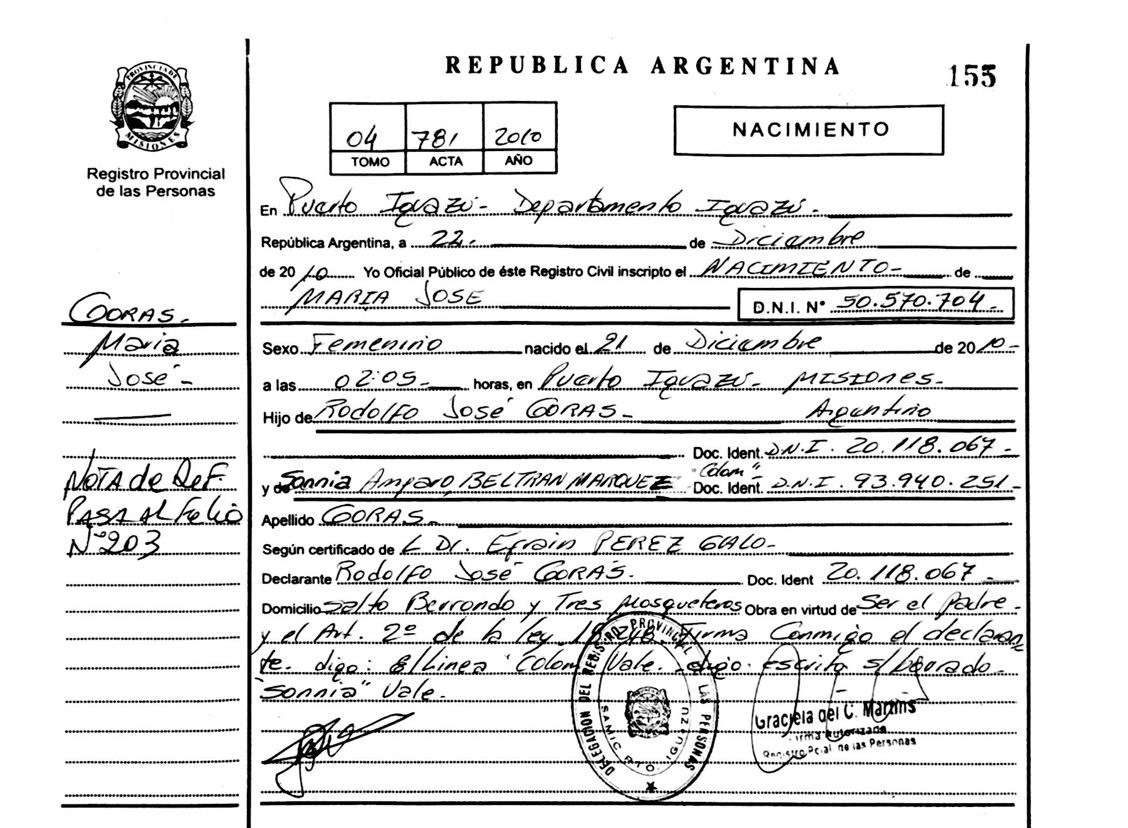 REPUBLICA ARGENTINA
155
PROVINCIA DE MISIONES
Registro Provincial
de las Personas
04 781 2010
TOMO ACTA AÑO
NACIMIENTO
En Puerto Iguazú - Departamento Iguazú -
República Argentina, a 22 - de Diciembre
de 2010 Yo Oficial Público de éste Registro Civil inscripto el NACIMIENTO - de
MARIA JOSE D.N.I. N° 50.570.704 -
GORAS -
Maria
José -
Sexo Femenino nacido el 21 de Diciembre de 2010 -
a las 02:05 - horas, en Puerto Iguazú - MISIONES -
Hijo de Rodolfo José GORAS - Argentino
Doc. Ident. D.N.I. 20.118.067 -
y de Sonnia Amparo, BELTRAN MARQUEZ "Colom" Doc. Ident. D.N.I. 93.940.251 -
NOTA de Ref.
PASA AL Folio
N° 203
Apellido GORAS -
Según certificado de L Dr. Efrain PEREZ GALO -
Declarante Rodolfo José GORAS - Doc. Ident 20.118.067 -
Domicilio Salto Berrondo y Tres Mosqueteros Obra en virtud de Ser el padre -
y el Art. 2º de la ley 18.248. Firma Conmigo el declaran
te. digo: E/Linea "Colom" Vale. digo: escrito s/borrado -
"Sonnia" Vale -
DELEGACION DEL REGISTRO PROVINCIAL DE LAS PERSONAS
SAMIC PTO. IGUAZU
Graciela del C. Martins
Firma Autorizada
Registro Pcial. de las Personas